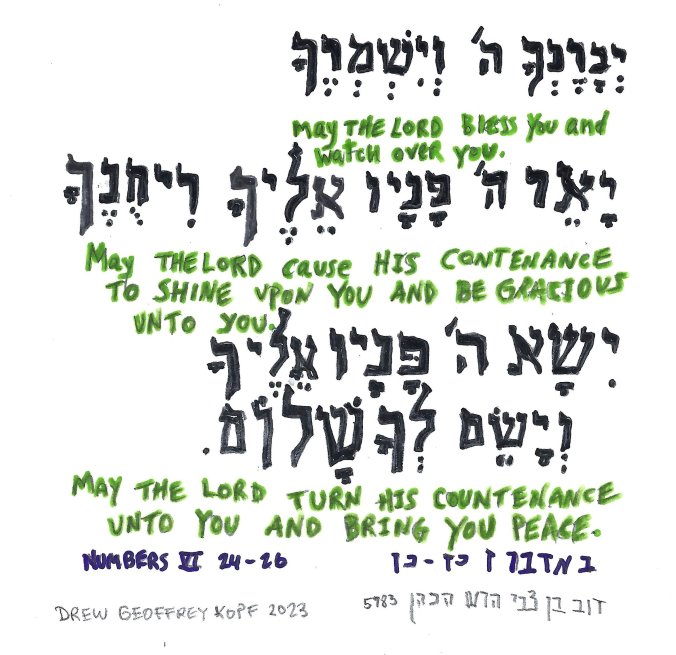 יְבָרֶכְךָ ה׳ וְיִשְׁמְרֶךָ
May THE LORD BLESS You and
watch over you.
יָאֵר ה׳ פָּנָיו אֵלֶיךָ וִיחֻנֶּךָ
May THE LORD cause HIS CONTENANCE
TO SHINE UPON YOU AND BE GRACIOUS
UNTO YOU.
יִשָּׂא ה׳ פָּנָיו אֵלֶיךָ
וְיָשֵׂם לְךָ שָׁלוֹם.
MAY THE LORD TURN HIS COUNTENANCE
UNTO YOU AND BRING YOU PEACE.
NUMBERS VI 24-26 במדבר ו כד - כו
DREW GEOFFREY KOPF 2023 דוב בן צבי הרש הכהן 5783